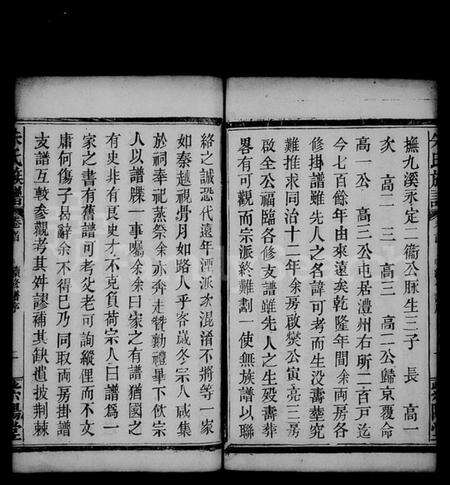 撫九溪永定二衞公豚生三子長高一
次高二三高三高二公歸京覆命
高一公高三公屯居澧州右所二百戸迄
今七百餘年由來遠矣乾隆年間余兩房各
修掛譜雖先人之名諱可考而生没壽葬究
難推求同治十二年余房啟爕公寅亮三房
啟全公福臨各修支譜雖先人之生殁壽葬
畧有可觀而宗派終難劃一使無族譜以聯
絡之誠恐代遠年湮派次混淆不將等一家
如秦越視骨月如路人乎客歲冬宗人咸集
於祠奉祀蒸祭余亦奔走贊勷禮畢下飲宗
人以譜牒一事囑余余曰家之有譜猶國之
有史非有良史才不克負荷宗人曰譜爲一
家之書有舊譜可考父老可詢縱俚而不文
庸何傷予曷辭余不得已乃同取兩房掛譜
支譜互較參觀考其舛謬補其缺遺披荆棘
朱氏族譜
卷首
續修譜序
二
紫陽堂